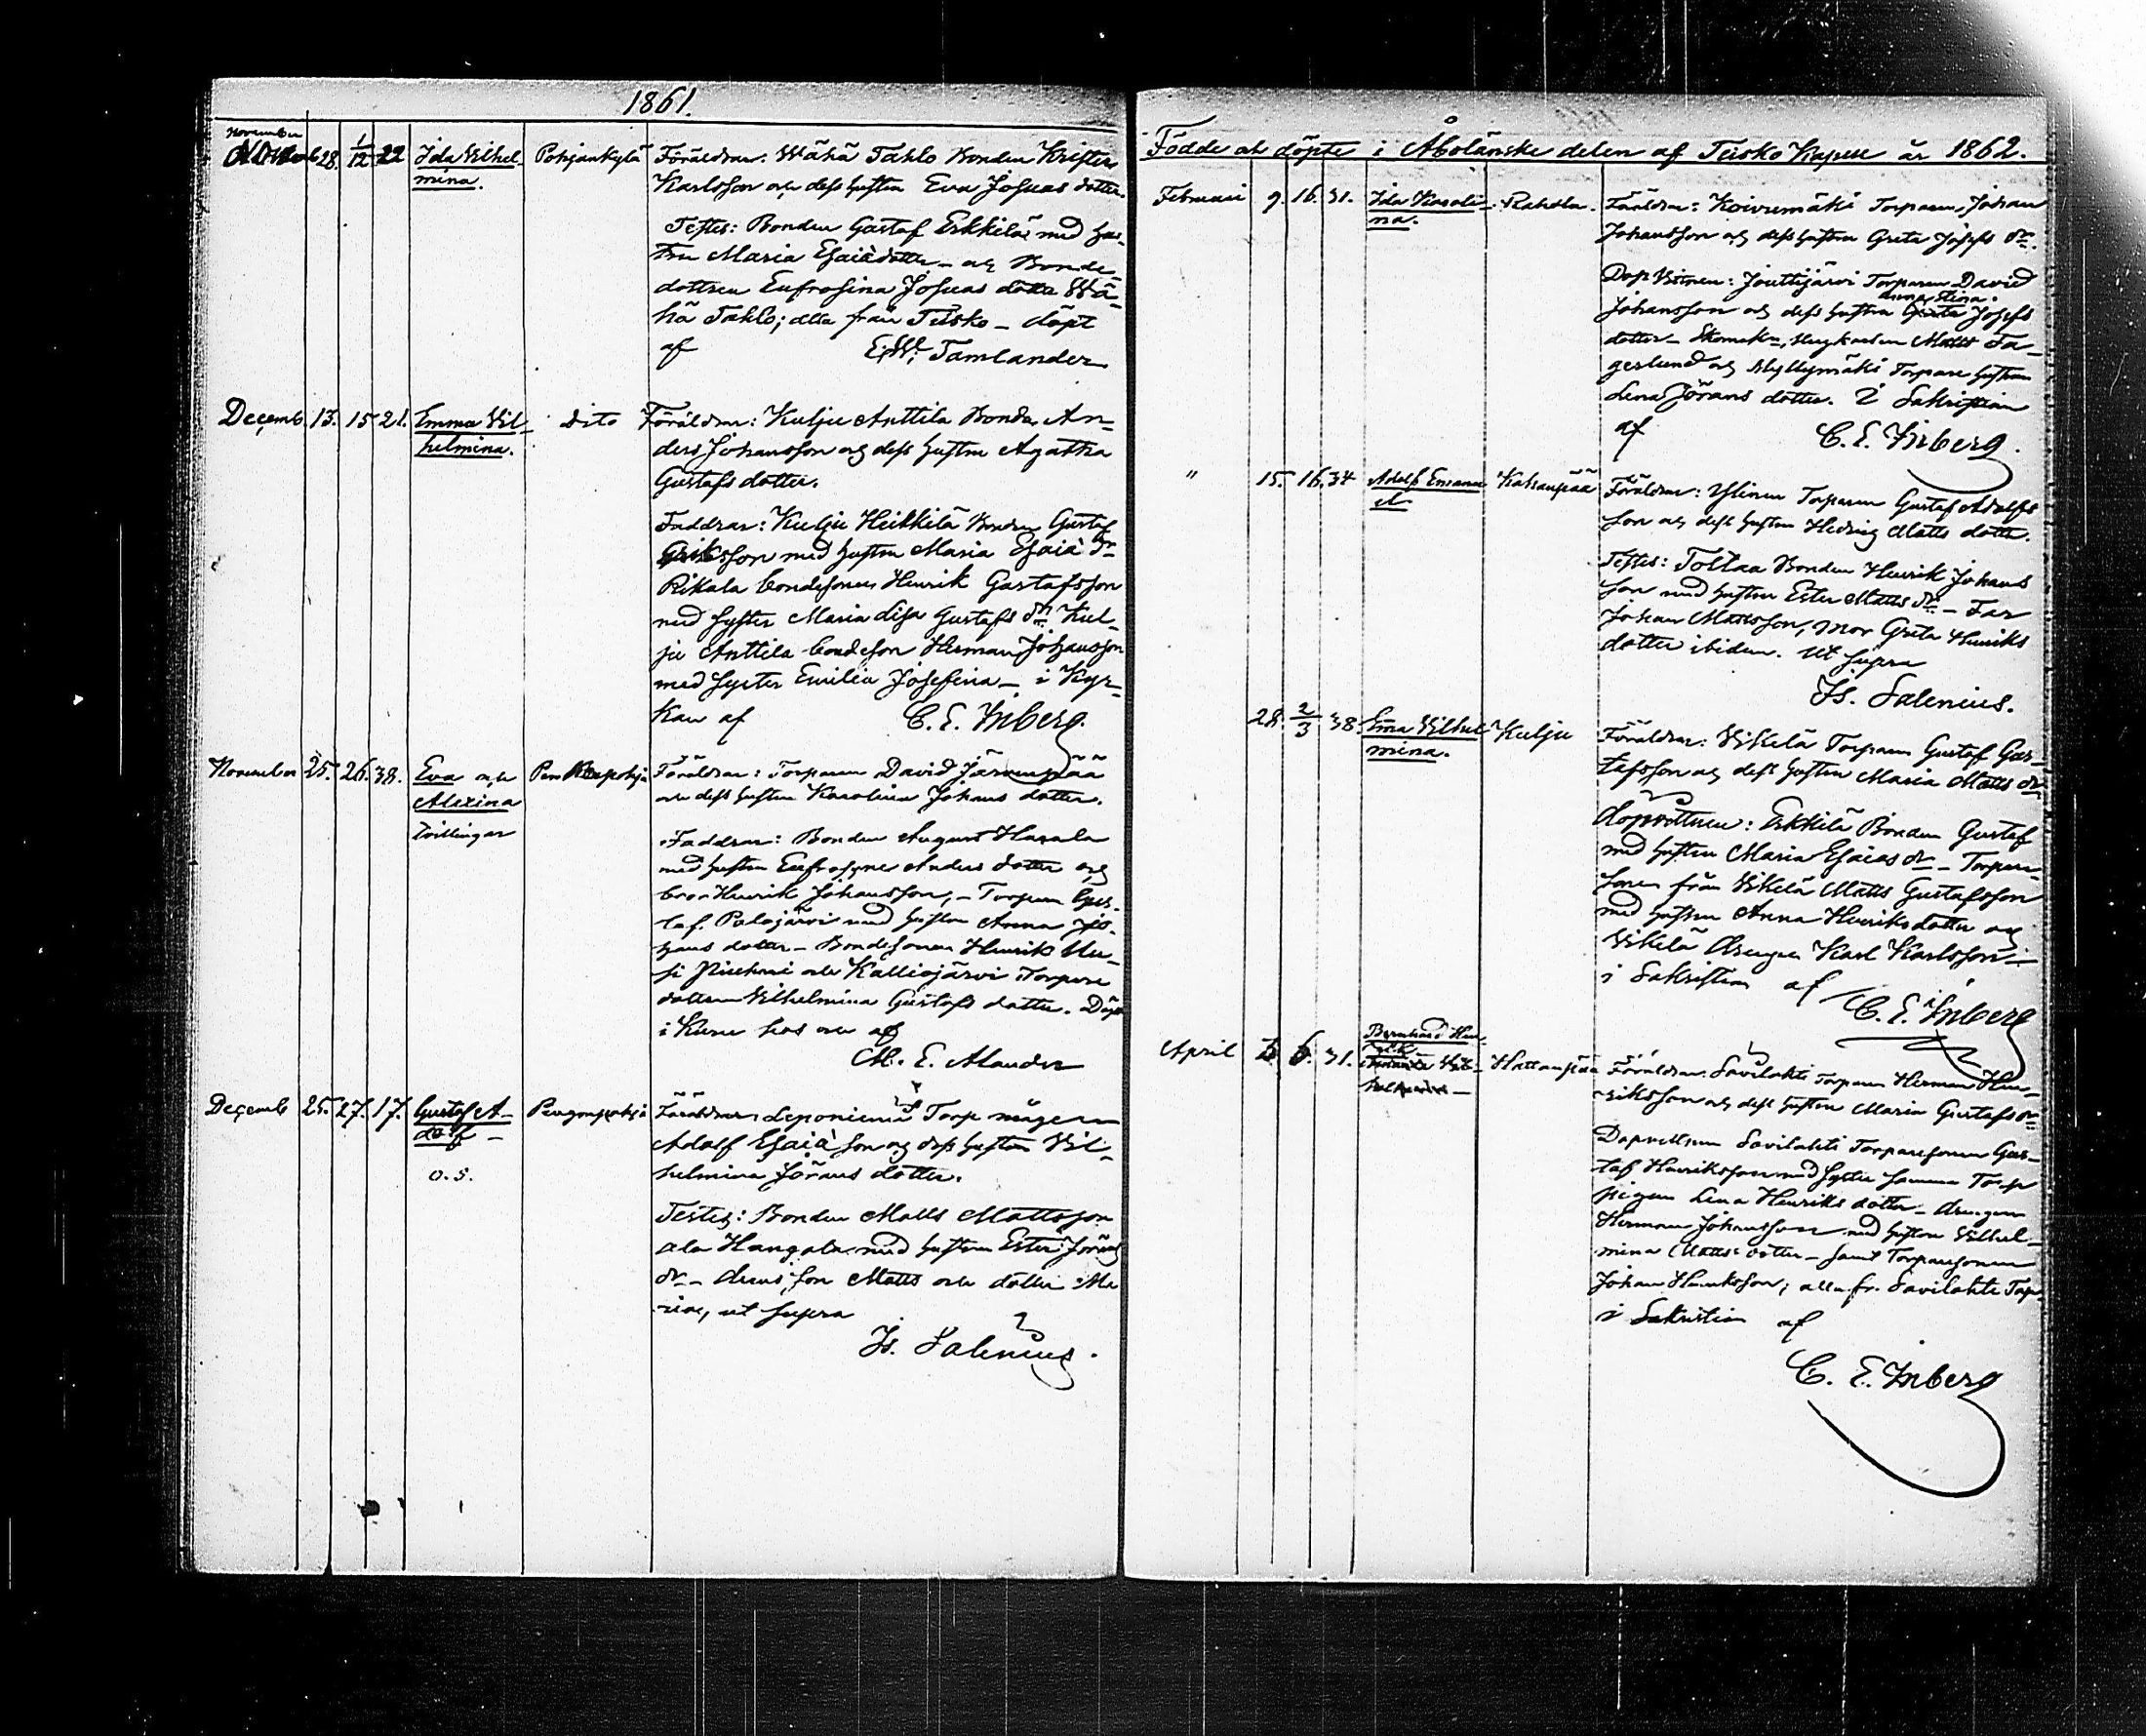 1861.
November 28. 1/12 22 Ida Vilhel- Pohjankylä Föräldrar: Wähä Tahlo Bonden Krister
mina. Karlsson och dess hustru Eva Josuas dotter.
Testes: Bonden Gustaf Erkkilä med hus-
tru Maria Esaiædotter - och Bonde-
dottren Eufrosina Josuas dotter Wä-
hä Tahlo; alla från Teisko - döpt
af E. W. Tamlander
Decemb 13. 15 21. Emma Vil- dito Föräldrar: Kulju Anttila Bonden An-
helmina. ders Johansson och dess hustru Agatha
Gustafs dotter.
Faddrar: Kulju Heikkilä Bonden Gustaf
Eriksson med hustru Maria Esaiæ dr
Rikala bondesonen Henrik Gustafsson
med syster Maria Lisa Gustafs dr Kul-
ju Anttila bondeson Herman Johansson
med syster Emilia Josefina - i Kyr-
kan af C. E. Inberg.
November 25. 26. 38. Eva och Föräldrar: Torparen David Järvenpää
Alexina och dess hustru Karolina Johans dotter.
Tvillingar
Faddrar: Bonden August Harala
med hustru Eufrosyne Anders dotter och
bror Henrik Johansson, - Torparen Gus-
taf Palojärvi med hustru Anna Jo-
hans dotter - Bondesonen Henrik Uu-
si och Kalliojärvi Torpare
dottren Vilhelmina Gustafs dotter. Döpt
i Kuru hos och af
M. E. Alander
Decemb 25. 27. 17. Gustaf A- Pengonpohja Föräldrar: Leponiemi Torp mågen
dolf - Adolf Esaiæ son och dess hustru Vil-
o. s. helmina Jörans dotter.
Testes: Bonden Matts Mattsson
ala Hangala med hustru Ester Jörans
dr - deras son Matts och dotter Ma
ria, ut supra
Is. Salenius.
Födde och döpte i Åbolänske delen af Teisko Kapell år 1862.
Februari 9. 16. 31. Ida Karoli- Föräldrar: Koivumäki Torparen Johan
na. Johansson och dess hustru Greta Josefs dr.
Dopvittnen: Jouttijärvi Torparen David
Anna Stina.
Johansson och dess hustru Josefs
dotter - Matts Fa-
gerlund och Myllymäki Torpare hustrun
Lena Jörans dotter. I Sakristian
af C. E. Inberg.
" 15. 16. 34 Adolf Emanu Kahanpää Föräldrar: Ylinen Torparen Gustaf Adolfs
el son och dess hustru Hedvig Matts dotter.
Testes: Toltaa Bonden Henrik Johans
son med hustru Ester Matts dr - Far
Johan Mattsson, Mor Greta Henriks
dotter ibidem. Ut supra
Is. Salenius.
28. 2/3 38. Ema Vilhel Kulju Föräldrar: Vikelä Torparen Gustaf Gus-
mina. tafsson och dess hustru Maria Matts dr
dopvittnen: Erkkilä Bonden Gustaf
med hustru Maria Esaias dr - Torpare
sonen från Vikelä Matts Gustafsson
med hustru Anna Henriksdotter och
Vikelä drengen Karl Karlsson -
i Sakristian af C. E. Inberg
April 5. 6. 31. Bernhard Hen- Hattanpää Föräldrar: Savilahti Torparen Herman Hen-
rik riksson och dess hustru Maria Gustafs dr
Dopvittnen Savilahti Torparesonen Gus-
taf Henriksson med syster samma Torp
pigan Lena Henriks dotter - drengen
Herman Johansson med hustru Vilhel-
mina Matts dotter - samt Torparesonen
Johan Henriksson; alla fr. Savilahti Torp
i Sakristian af
C. E. Inberg